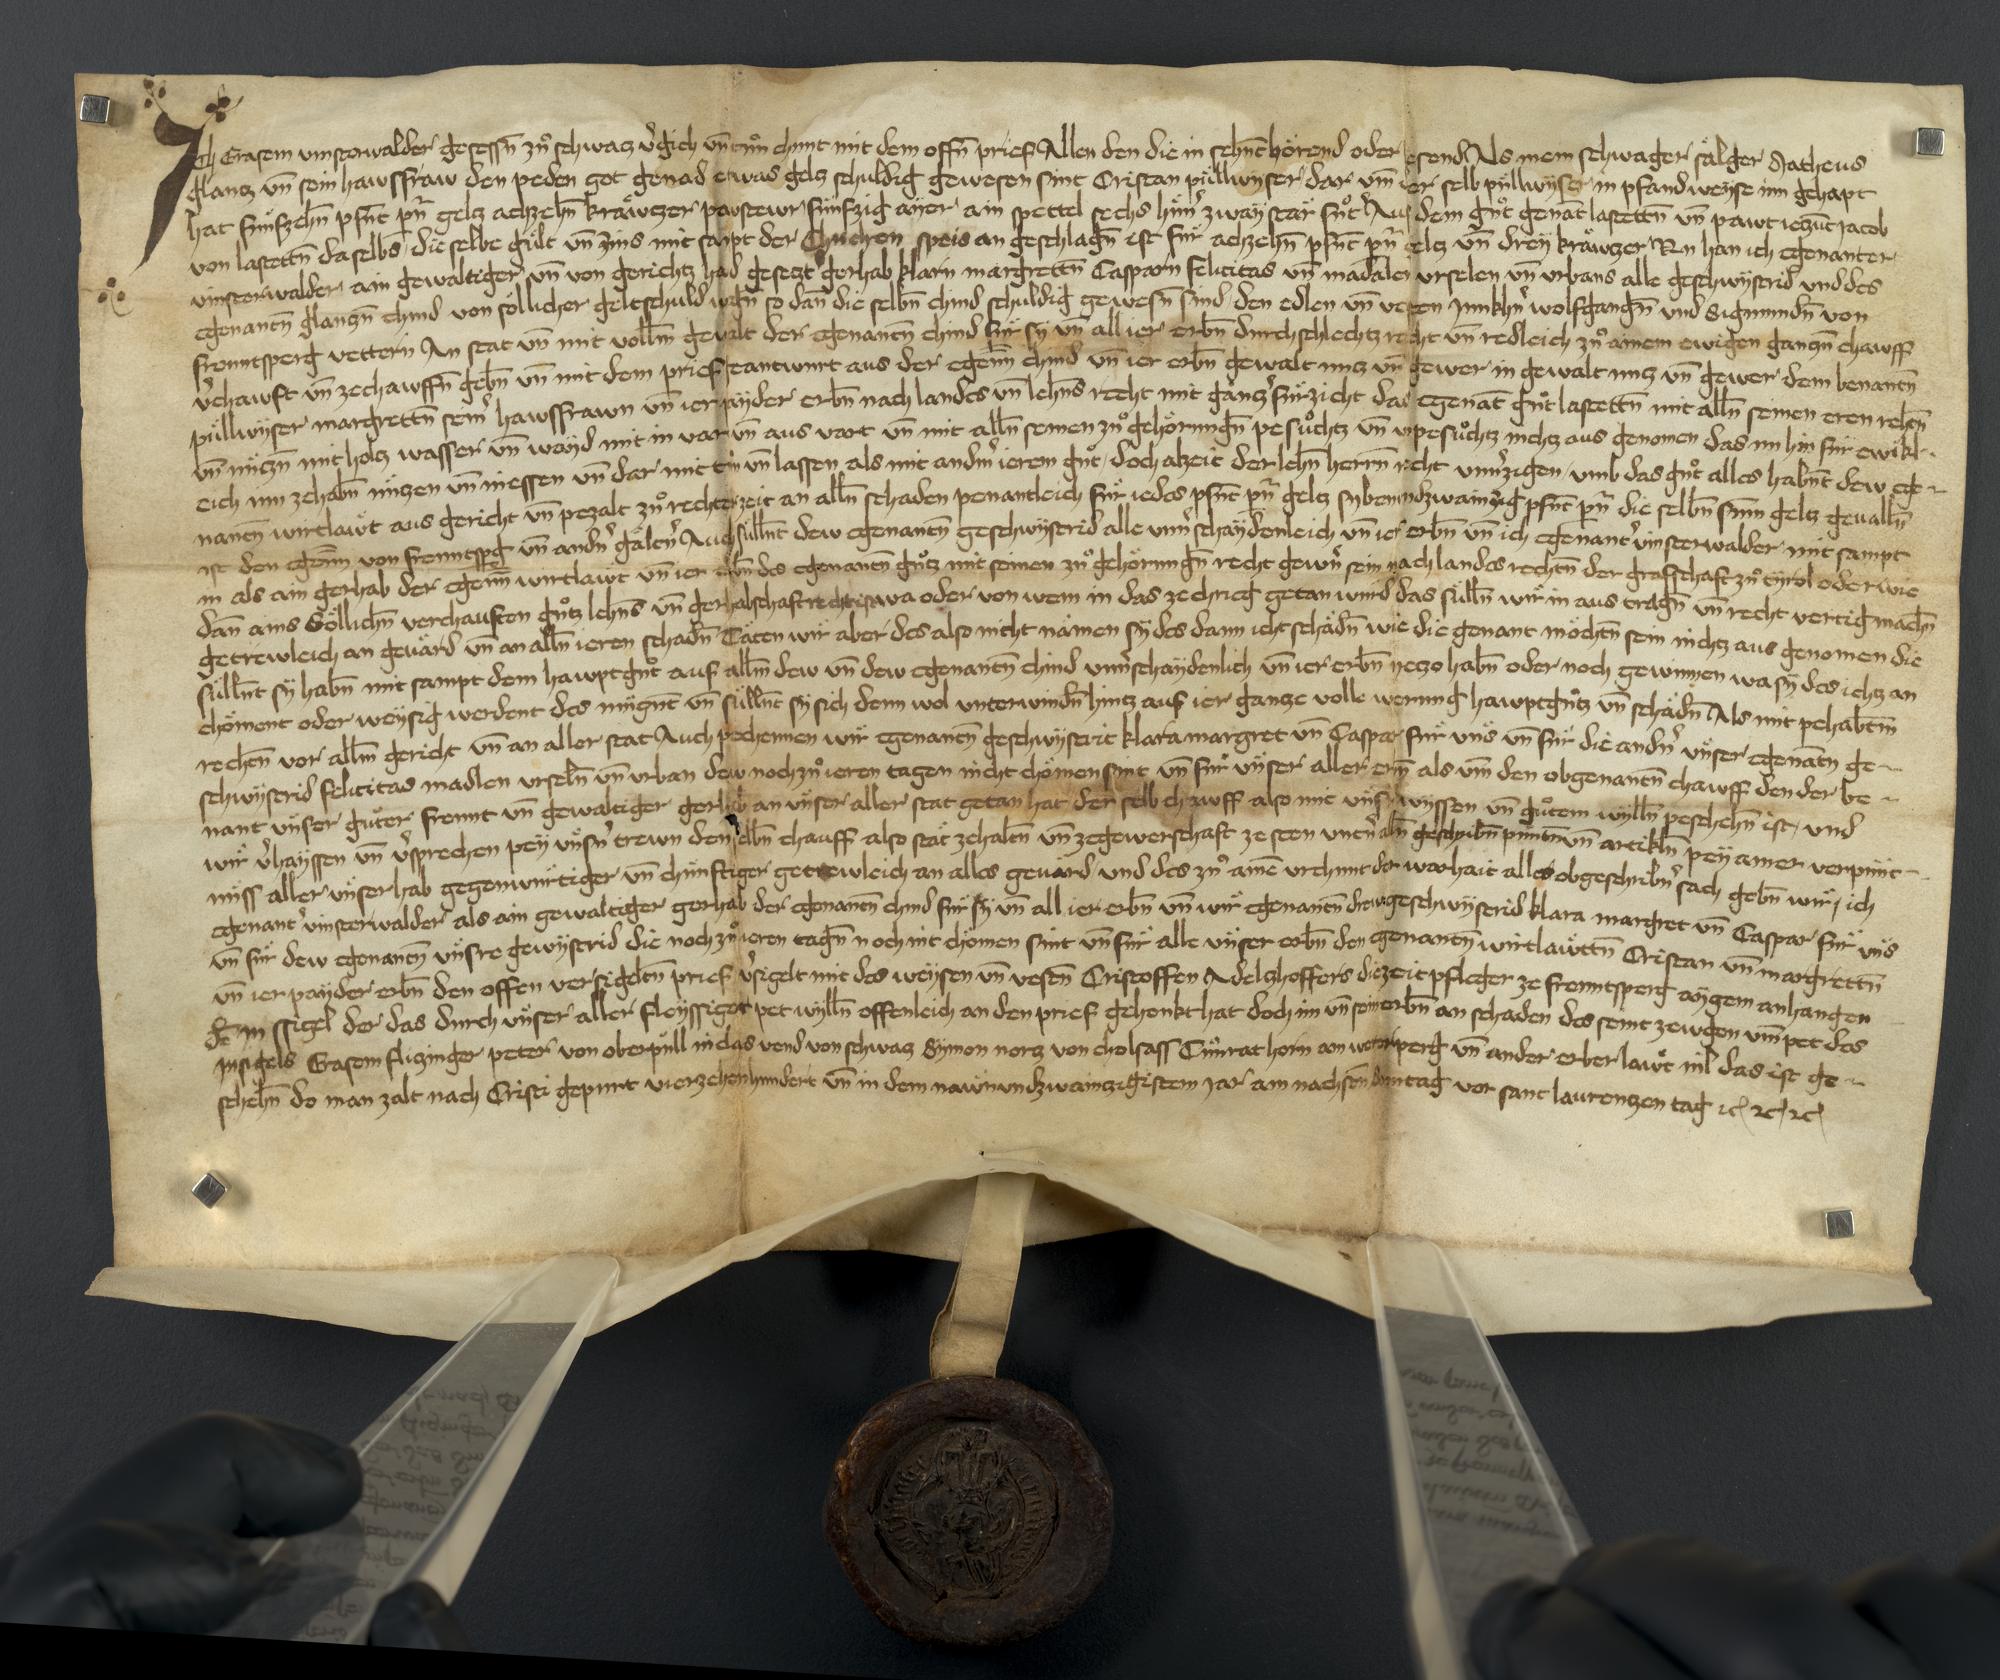 Ich Erasem vinsterwalder gesessñ zuͦ schwaz v̉gich vñ tuͦn chunt mit dem offñ prief Allen den die in sehñt hörend oder lesend Als mein schwager sälger Matheus
glancz vñ sein hawsffraw den peden got genad etwas gelcz schuldig gewesen sint Cristan püllwyser dar vm̄ der selb püllwyser in pfandweyse inn gehapt
hat fünfzehñ pfñt pn̄ gelcz achzehñ kräwczer fünfzig ayer ain spettel sechs hün̉ zwaÿ stär Aus dem guͦt genāt lastettñ vñ pawt jeczūt Jacob
von lastettñ daselbs / die selbe gült vñ zins mit sampt der Chuchen speis an geschlagñ ist für achzehñ pfñt pn̄ gelcz vñ dreÿ kräwczer Nu han ich egenanter
vinsterwalder ain gewaltiger vñ von gerichtz had gesetzt gerhab klarn margrettñ Casparn felicitas vñ madalen vrselen vñ vrbans alle geschwyserid vnd des
egenantñ glanczñ chind von söllicher geltschuld wegñ so dañ die selbñ chind schuldig gewesñ sind / den edlen vñ vesten Junkhñ wolfgangñ vnd Sigmundñ von
frewntsperg vettern An stat vñ mit vollm̄ gewalt der egenantñ chind für sÿ vñ all ier erbñ durchschlechtz recht vñ redleich zuͦ ainem ewigen ganczñ chawff
v̉chawft vñ zechawffñ gebñ vñ mit dem prief geantwurt aus der egeñn chind vñ ier erbñ gewalt nucz vñ gewer in gewalt nucz vñ gewer dem benantñ
püllwyser margrettñ sein̉ hawsffrawn vñ ier payder erbñ nach landes vñ lehñs recht mit gancz̉ fürzicht das egenāt guͦt lastettñ mit allñ seinen eren rechtñ
vñ nüczñ mit holcz wasser vñ wayd mit in vart vñ aus vart vñ mit allñ seinen zuͦ gehörungñ pesuͦchtz vñ vnpesuͦchtz nichtz aus genomen das nu hin für ewikl-
eich inn zehabñ nüczen vñ niessen vñ dar mit tün vñ lassen als mit andm̉ ierem guͦt / doch alzeit der lehñ herrñ recht vnủzigen / vmb das guͦt alles habñt dew ege-
nanñ wirtlawt aus gericht vñ peczalt zuͦ rechter zeit an allñ schaden penantleich für iedes pfñt pn̄ gelcz sybenundzwainczig pfñt pn̄ die selbñ sum̄ gelcz geuallñ
ist den egeñn von frewntspg̉ vñ andn̉ gältn̉ Auch süllñt dew egenanten geschwyserid alle vnủschaydenleich vñ ier erbñ vñ ich egenant̉ vinsterwalder mit sampt
in als ain gerhab der egeñn wirtlawt vñ ier erbñ des egenantñ guͦtz mit seinen zuͦ gehörungñ recht gewn̉ sein nach landes rechtñ der grafschaft zuͦ tyrol oder wie
dañ ains söllichñ verchauften guͦtz lehñs vñ gerhabschaft recht ist wa oder von wem in das ze chrieg getan wurd das süllñ wir in aus tragñ vñ recht vertig machñ
getrewleich an geuärd vñ an allñ ieren schadñ Täten wir aber des also nicht nämen sÿ des dann icht schädñ wie die genant möchtñ sein nichtz aus genomen die
süllñt sÿ habñ mit sampt dem hawptguͦt auf allm̄ dew vñ dew egenanten chind vnủschaydenlich vñ ier erbñ yeczo habñ oder noch gewinnen wa sÿ des ichtz an
chöment oder weysig werdent des mügñt vñ süllñt sÿ sich denn wol vnterwindñ hincz auf ier gancze volle werung hawptguͦtz vñ schadñ Als mit pehabtm̄
rechtñ vor allm̄ gericht vñ an aller stat Auch pechennen wir egenantñ geschwyserit klara margret vñ Caspar für vns vñ für die andn̉ vnser egenātñ ge-
schwyserid felicitas madlen vrselñ vñ vrban dew noch zuͦ ieren tagen nicht chömen sint vñ für vnser aller erbñ als vm̄ den obgenanten chawff den der be-
nant vnser guͤter frewnt vñ gewaltiger gerhab an vnser aller stat getan hat der selb chawff also mit vnsr̉ wyssen vñ guͦtem wyllñ peschehñ ist / vnd
wir v̉hayssen vñ v̉sprechen peÿ vnsn̉ trewn den selbñ chauff also stät zehaltñ vñ zegewerschaft ze sten artiklñ peÿ ainer verpünt-
nüss aller vnser hab gegenwürtiger vñ chünftiger getrewleich an alles geuärd / vnd des zuͦ aine vrchunt der warhait aller obgeschribn̉ sach gebñ wir / ich
egenant̉ vinsterwalder als ain gewaltiger gerhab der egenantñ chind für sÿ vñ all ier erbñ vñ wir egenantñ drew geschwyserid klara margret vñ Caspar für vns
vñ für dew egenantñ vnsre gewyserid die noch zuͦ ieren tagñ noch nit chömen sint vñ für alle vnser erbñ den egenantñ wirtlawttñ Cristan vñ margrettñ
vñ ier payder erbñ den offen versigeltñ prief v̉sigelt mit des weysen vñ vestñ Cristoffen Adelczhoffers die zeit pfleger ze frewntsperg aygem anhangen
dē in ssigel der das durch vnser aller fleyssiger pet wyllñ offenleich an den prief gehenkt hat doch im vñ sein erbñ an schaden des seint zewgen vm̄ pet des
insigels Erasem fliczinger peter von oberpüll in das vend von schwaz Symon norz von cholsass Cünrat horn am perg vñ ander erber lawt nil das ist ge-
schehñ do man zalt nach Cristi gepurt vierzehenhundert vñ in dem nawnvndzwainczigistem Jar am nachsten tag vor sant laurenczen tag rc rc rc